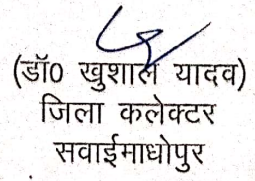 (डॉ0 खुशाल यादव)
जिला कलेक्टर
सवाईमाधोपुर